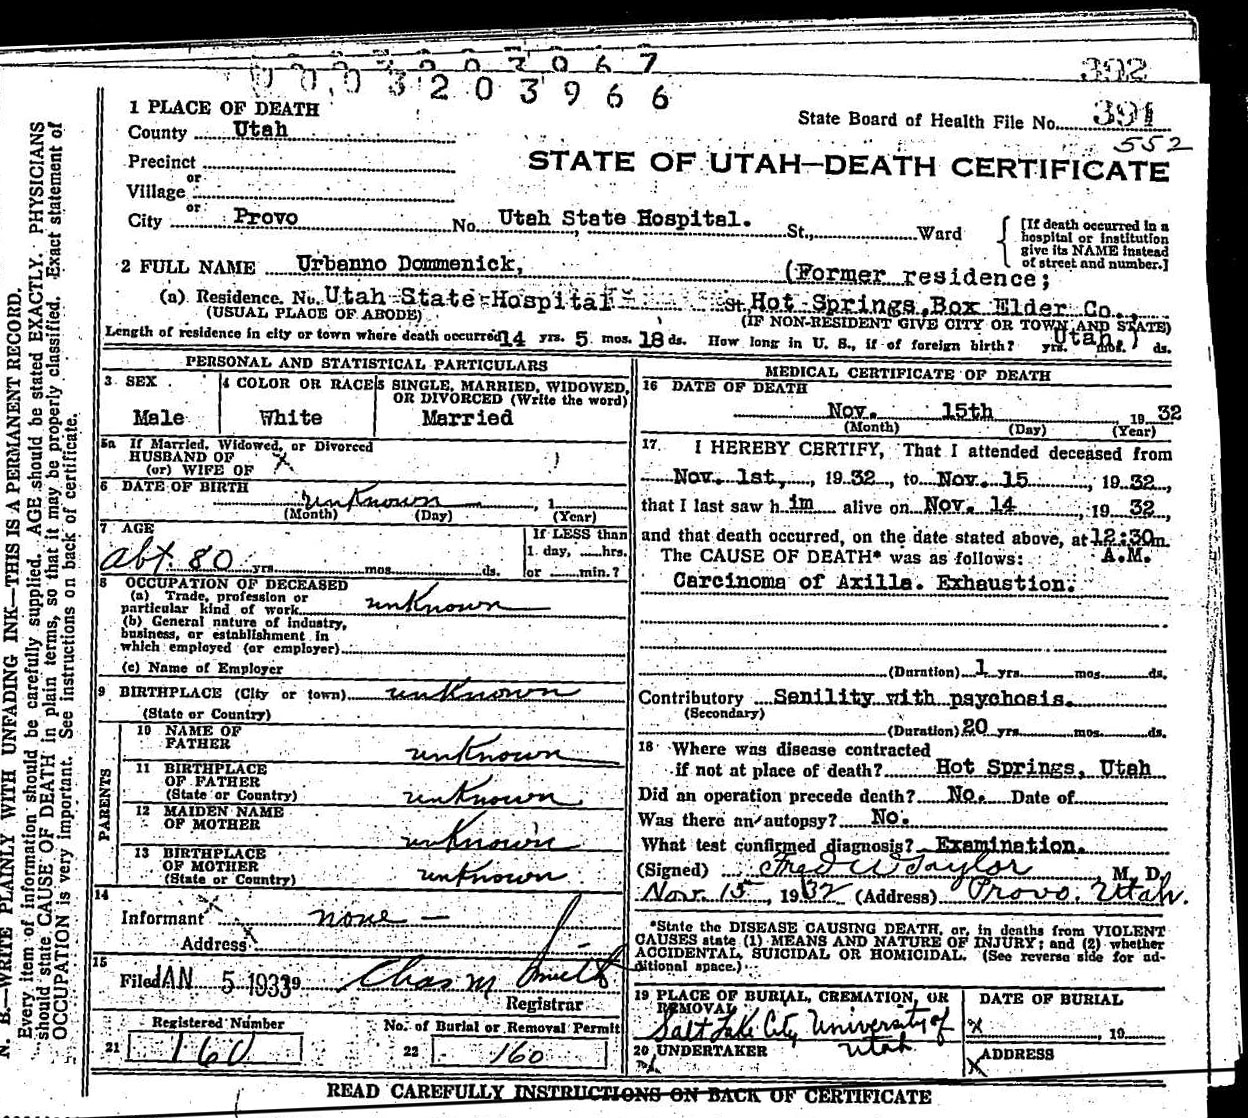 3 2 0 3 9 6 7
392
0 0 0 3 2 0 3 9 6 6
1 PLACE OF DEATH
County Utah
State Board of Health File No. 391
552
Precinct
or
Village
STATE OF UTAH—DEATH CERTIFICATE
or
City Provo No. Utah State Hospital. St., Ward
[If death occurred in a
hospital or institution
give its NAME instead
of street and number.]
2 FULL NAME Urbanno Dommenick, (Former residence;
(a) Residence. No. Utah State Hospital St. Hot Springs, Box Elder Co.,
(USUAL PLACE OF ABODE) (IF NON-RESIDENT GIVE CITY OR TOWN AND STATE)
Utah.)
Length of residence in city or town where death occurred 14 yrs. 5 mos. 18 ds. How long in U. S., if of foreign birth? yrs. mos. ds.
PERSONAL AND STATISTICAL PARTICULARS
3 SEX
Male
4 COLOR OR RACE
White
5 SINGLE, MARRIED, WIDOWED,
OR DIVORCED (Write the word)
Married
5a If Married, Widowed, or Divorced
HUSBAND OF
(or) WIFE OF X
6 DATE OF BIRTH
unknown , 1
(Month) (Day) (Year)
7 AGE
abt. 80 yrs. mos. ds.
If LESS than
1 day, hrs.
or min.?
8 OCCUPATION OF DECEASED
(a) Trade, profession or
particular kind of work unknown
(b) General nature of industry,
business, or establishment in
which employed (or employer)
(c) Name of Employer
9 BIRTHPLACE (City or town) unknown
(State or Country)
PARENTS
10 NAME OF
FATHER unknown
11 BIRTHPLACE
OF FATHER
(State or Country) unknown
12 MAIDEN NAME
OF MOTHER unknown
13 BIRTHPLACE
OF MOTHER
(State or Country) unknown
14
Informant X none —
Address X
15
Filed JAN 5 1933 19 Chas M Smith
Registrar
Registered Number
21 160
No. of Burial or Removal Permit
22 160
MEDICAL CERTIFICATE OF DEATH
16 DATE OF DEATH
Nov. 15th 1932
(Month) (Day) (Year)
17. I HEREBY CERTIFY, That I attended deceased from
Nov. 1st, , 1932 , to Nov. 15 , 1932 ,
that I last saw h im alive on Nov. 14 , 19 32 ,
and that death occurred, on the date stated above, at 12:30m.
The CAUSE OF DEATH* was as follows: A.M.
Carcinoma of Axilla. Exhaustion.
(Duration) 1 yrs. mos. ds.
Contributory Senility with psychosis.
(Secondary)
(Duration) 20 yrs. mos. ds.
18 Where was disease contracted
if not at place of death? Hot Springs, Utah
Did an operation precede death? No. Date of
Was there an autopsy? No.
What test confirmed diagnosis? Examination.
(Signed) Fred W Taylor , M. D.
Nov. 15 , 1932 (Address) Provo, Utah.
*State the DISEASE CAUSING DEATH, or, in deaths from VIOLENT
CAUSES state (1) MEANS AND NATURE OF INJURY; and (2) whether
ACCIDENTAL, SUICIDAL OR HOMICIDAL. (See reverse side for ad-
ditional space.)
19 PLACE OF BURIAL, CREMATION, OR
REMOVAL
Salt Lake City University of
Utah
DATE OF BURIAL
X , 19
20 UNDERTAKER
X
ADDRESS
X
READ CAREFULLY INSTRUCTIONS ON BACK OF CERTIFICATE
N. B.—WRITE PLAINLY WITH UNFADING INK—THIS IS A PERMANENT RECORD.
Every item of information should be carefully supplied. AGE should be stated EXACTLY. PHYSICIANS
should state CAUSE OF DEATH in plain terms, so that it may be properly classified. Exact statement of
OCCUPATION is very important. See instructions on back of certificate.